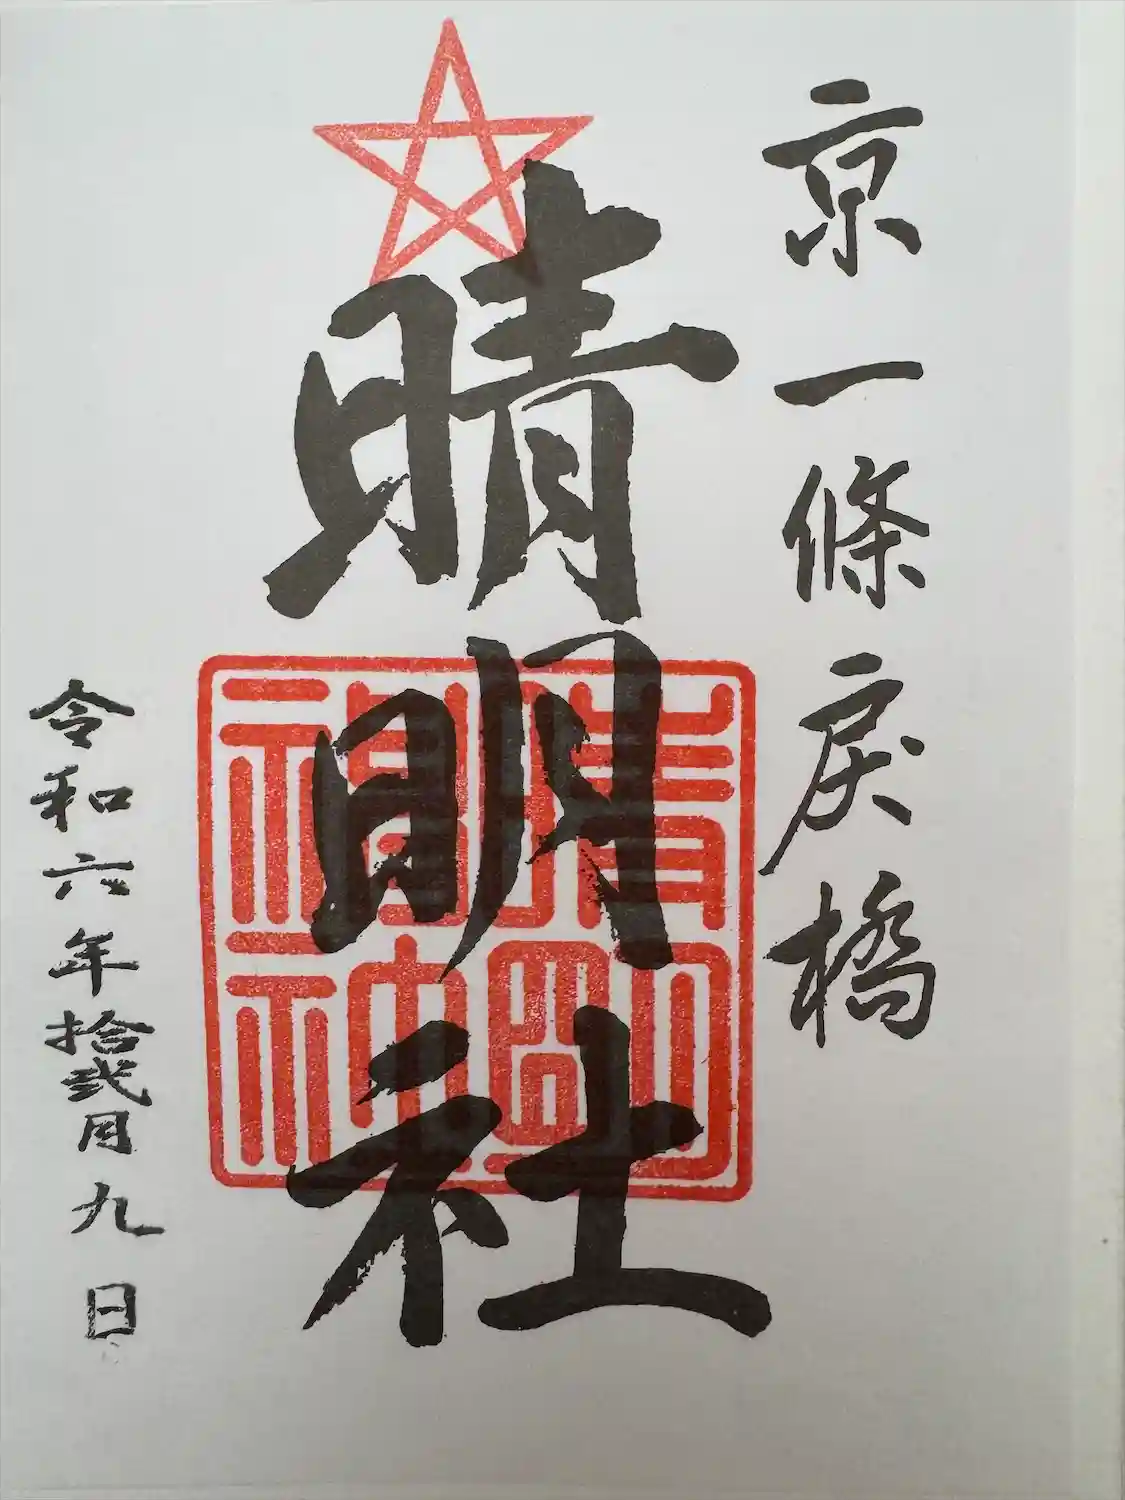 京一條戻橋
晴明社
令和六年拾弐月九日